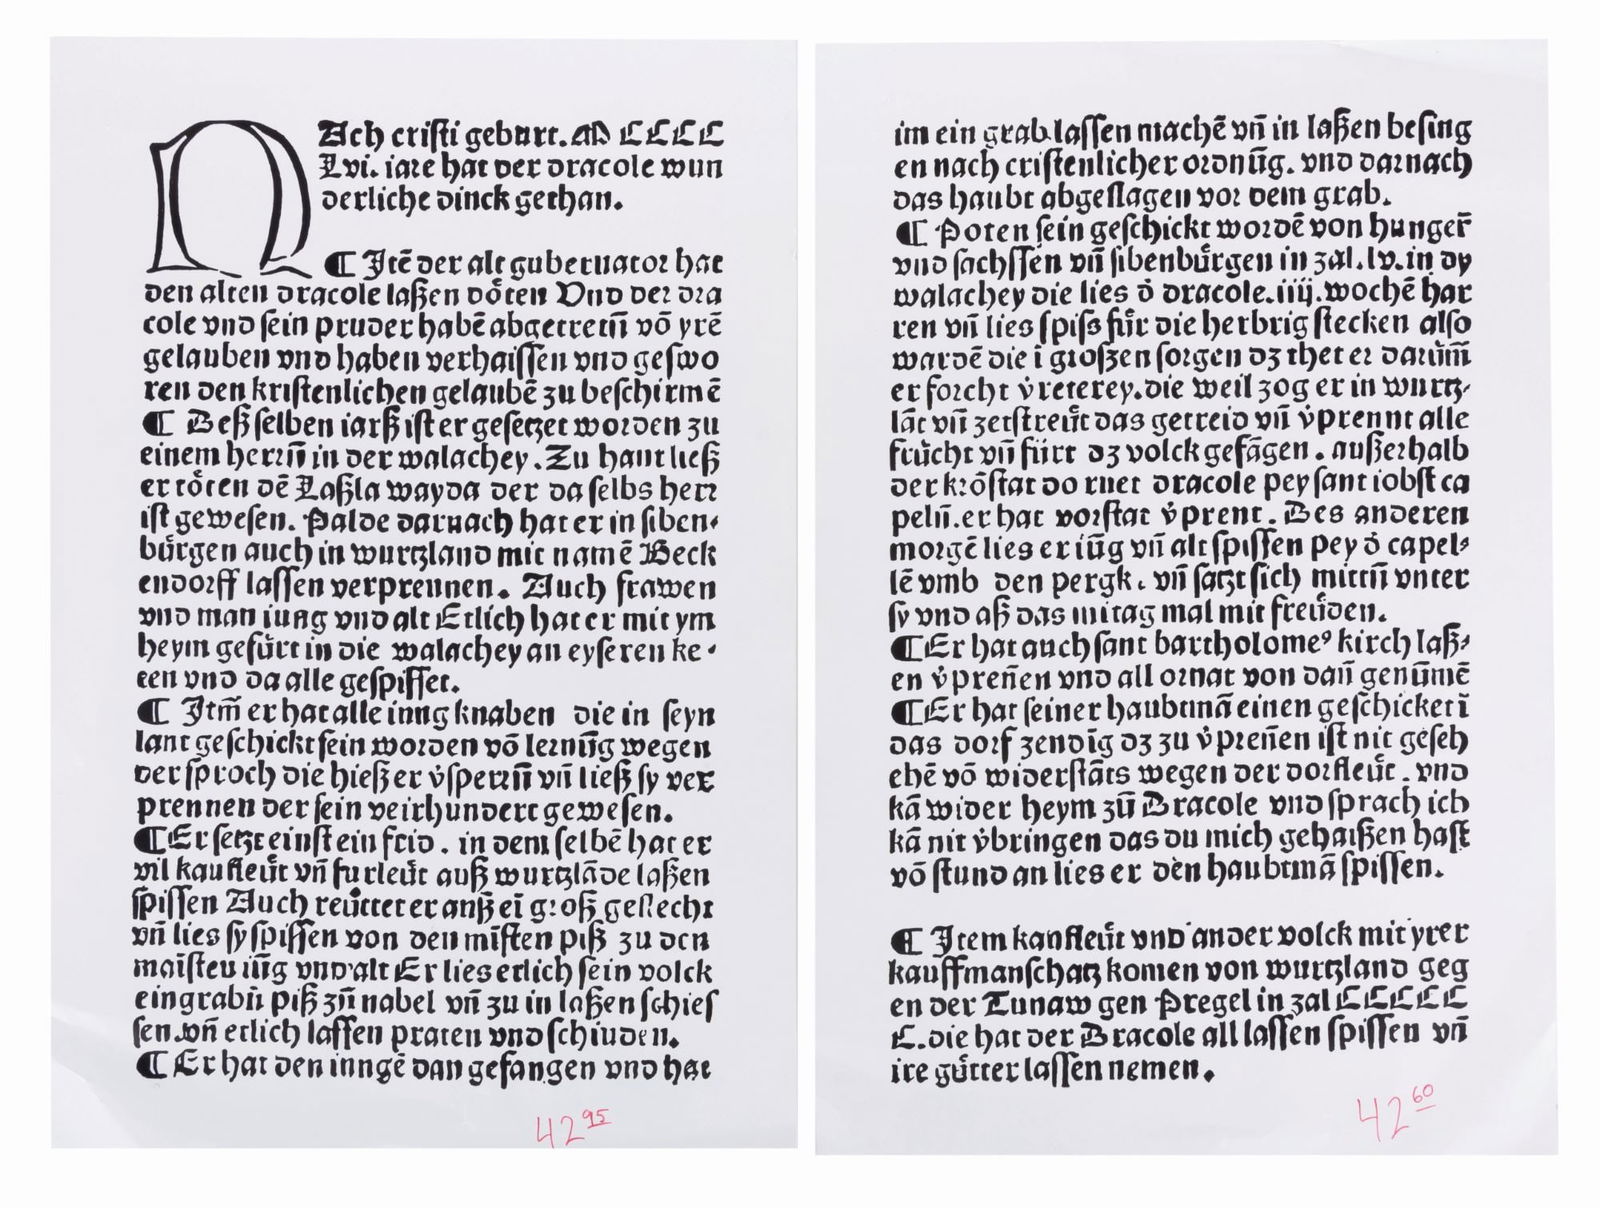 NAch cristi geburt. M CCCC
Lvi. iare hat der dracole wun
derliche dinck gethan.
¶ Jtē der alt gubernator hat
den alten dracole laßen dőten Vnd der dra
cole vnd sein pruder habē abgetretñ vō yrē
gelauben vnd haben verhaissen vnd geswo
ren den kristenlichen gelaubē zu beschirmē
¶ Deß selben iarß ist er gesetzet worden zu
einem herrñ in der walachey. Zu hant ließ
er tőten dē Laßla wayda der da selbs herr
ist gewesen. Palde darnach hat er in siben-
bürgen auch in wurtzland mit namē Beck
endorff lassen verprennen. Auch frawen
vnd man iung vnd alt Etlich hat er mit ym
heym gefürt in die walachey an eyseren ke-
ten vnd da alle gespisset.
¶ Jtm̄ er hat alle inng knaben die in seyn
lant geschickt sein worden vō lernūg wegen
der sproch die hieß er v̇sperrñ vñ ließ sy ver
prennen der sein veirhundert gewesen.
¶ Er setzt einst ein frid. in dem selbē hat er
vil kaufleüt vñ furleüt auß wurtzlāde laßen
spissen Auch reüttet er anß eī groß geslecht
vñ lies sy spissen von den mīsten piß zu den
maīsten iūg vnd alt Er lies etlich sein volck
eingrabñ piß zū nabel vñ zu in laßen schies
sen. vñ etlich lassen praten vnd schinden.
¶ Er hat den inngē dan gefangen vnd hat
42 95
im ein grab lassen machē vñ in laßen besing
en nach cristenlicher ordnūg. vnd darnach
das haubt abgeslagen vor dem grab.
¶ Poten sein geschickt wordē von hunger̄
vnd sachssen vñ sibenbürgen in zal. lv. in dy
walachey die lies ḋ dracole. iiij. wochē har
ren vñ lies spiss für die herbrig stecken also
wardē die ī großen sorgen dz thet er darūm̄
er forcht v̇reterey. die weil zog er in wurtz-
lāt vñ zerstreüt das getreid vñ v̇prennt alle
frücht vñ fürt dz volck gefāgen. außerhalb
der krōstat do ruet dracole pey sant iobst ca
pelñ. er hat vorstat v̇prent. Des anderen
morgē lies er iūg vñ alt spissen pey ḋ capel-
lē vmb den pergk. vñ satzt sich mittñ vnter
sy vnd aß das mitag mal mit freüden.
¶ Er hat auch sant bartholomeꝰ kirch laß-
en v̇preñen vnd all ornat von dañ genūmē
¶ Er hat seiner haubtmā einen geschicket ī
das dorf zendīg dz zu v̇preñen ist nit gesch
ehē vō widerstāts wegen der dorfleüt. vnd
kā wider heym zū Dracole vnd sprach ich
kā nit v̇bringen das du mich gehaißen hast
vō stund an lies er den haubtmā spissen.
¶ Jtem kanfleüt vnd ander volck mit yrer
kauffmanschatz komen von wurtzland geg
en der Tunaw gen Pregel in zal CCCCC
C. die hat der Dracole all lassen spissen vñ
ire gütter lassen nemen.
42 60